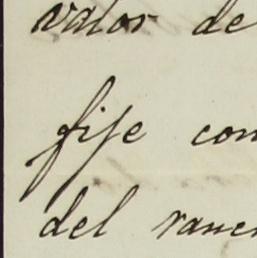 valor de
fije con
del ranc